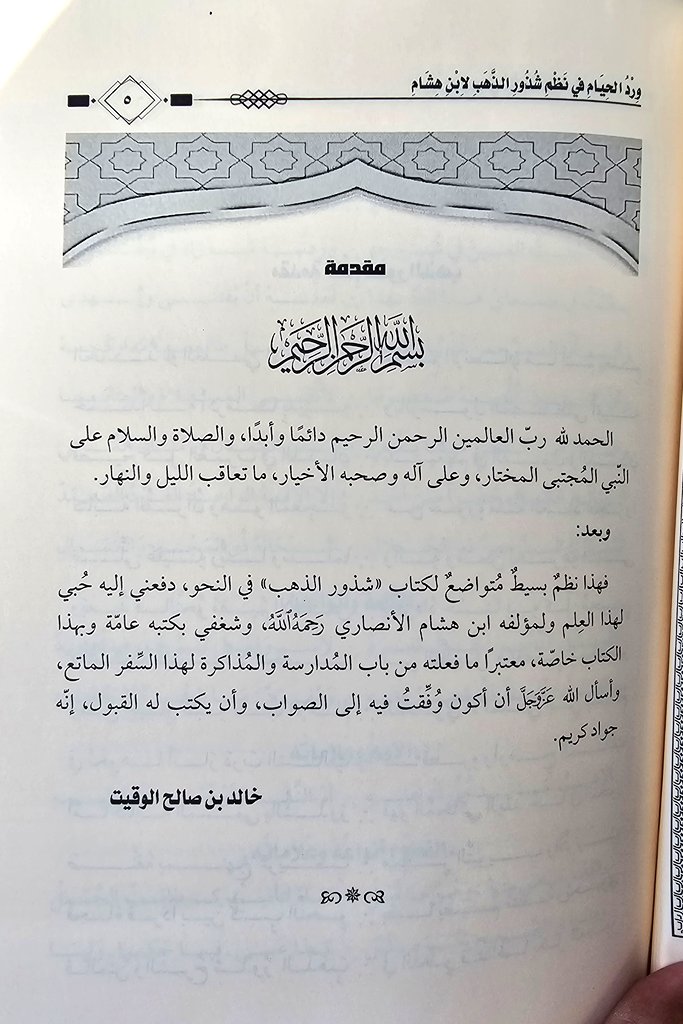 وِرْدُ الحِيَامِ في نَظْمِ شُذُورِ الذَّهَبِ لابْنِ هِشَامِ
٥
مقدمة
بسم الله الرحمن الرحيم
الحمد لله ربّ العالمين الرحمن الرحيم دائمًا وأبدًا، والصلاة والسلام على
النّبي المُجتبى المختار، وعلى آله وصحبه الأخيار، ما تعاقب الليل والنهار.
وبعد:
فهذا نظمٌ بسيطٌ مُتواضعٌ لكتاب «شذور الذهب» في النحو، دفعني إليه حُبي
لهذا العِلم ولمؤلفه ابن هشام الأنصاري رَحِمَهُ ٱللَّهُ، وشغفي بكتبه عامّة وبهذا
الكتاب خاصّة، معتبرًا ما فعلته من باب المُدارسة والمُذاكرة لهذا السِّفر الماتع،
وأسأل الله عَزَّوَجَلَّ أن أكون وُفِّقتُ فيه إلى الصواب، وأن يكتب له القبول، إنّه
جواد كريم.
خالد بن صالح الوقيت